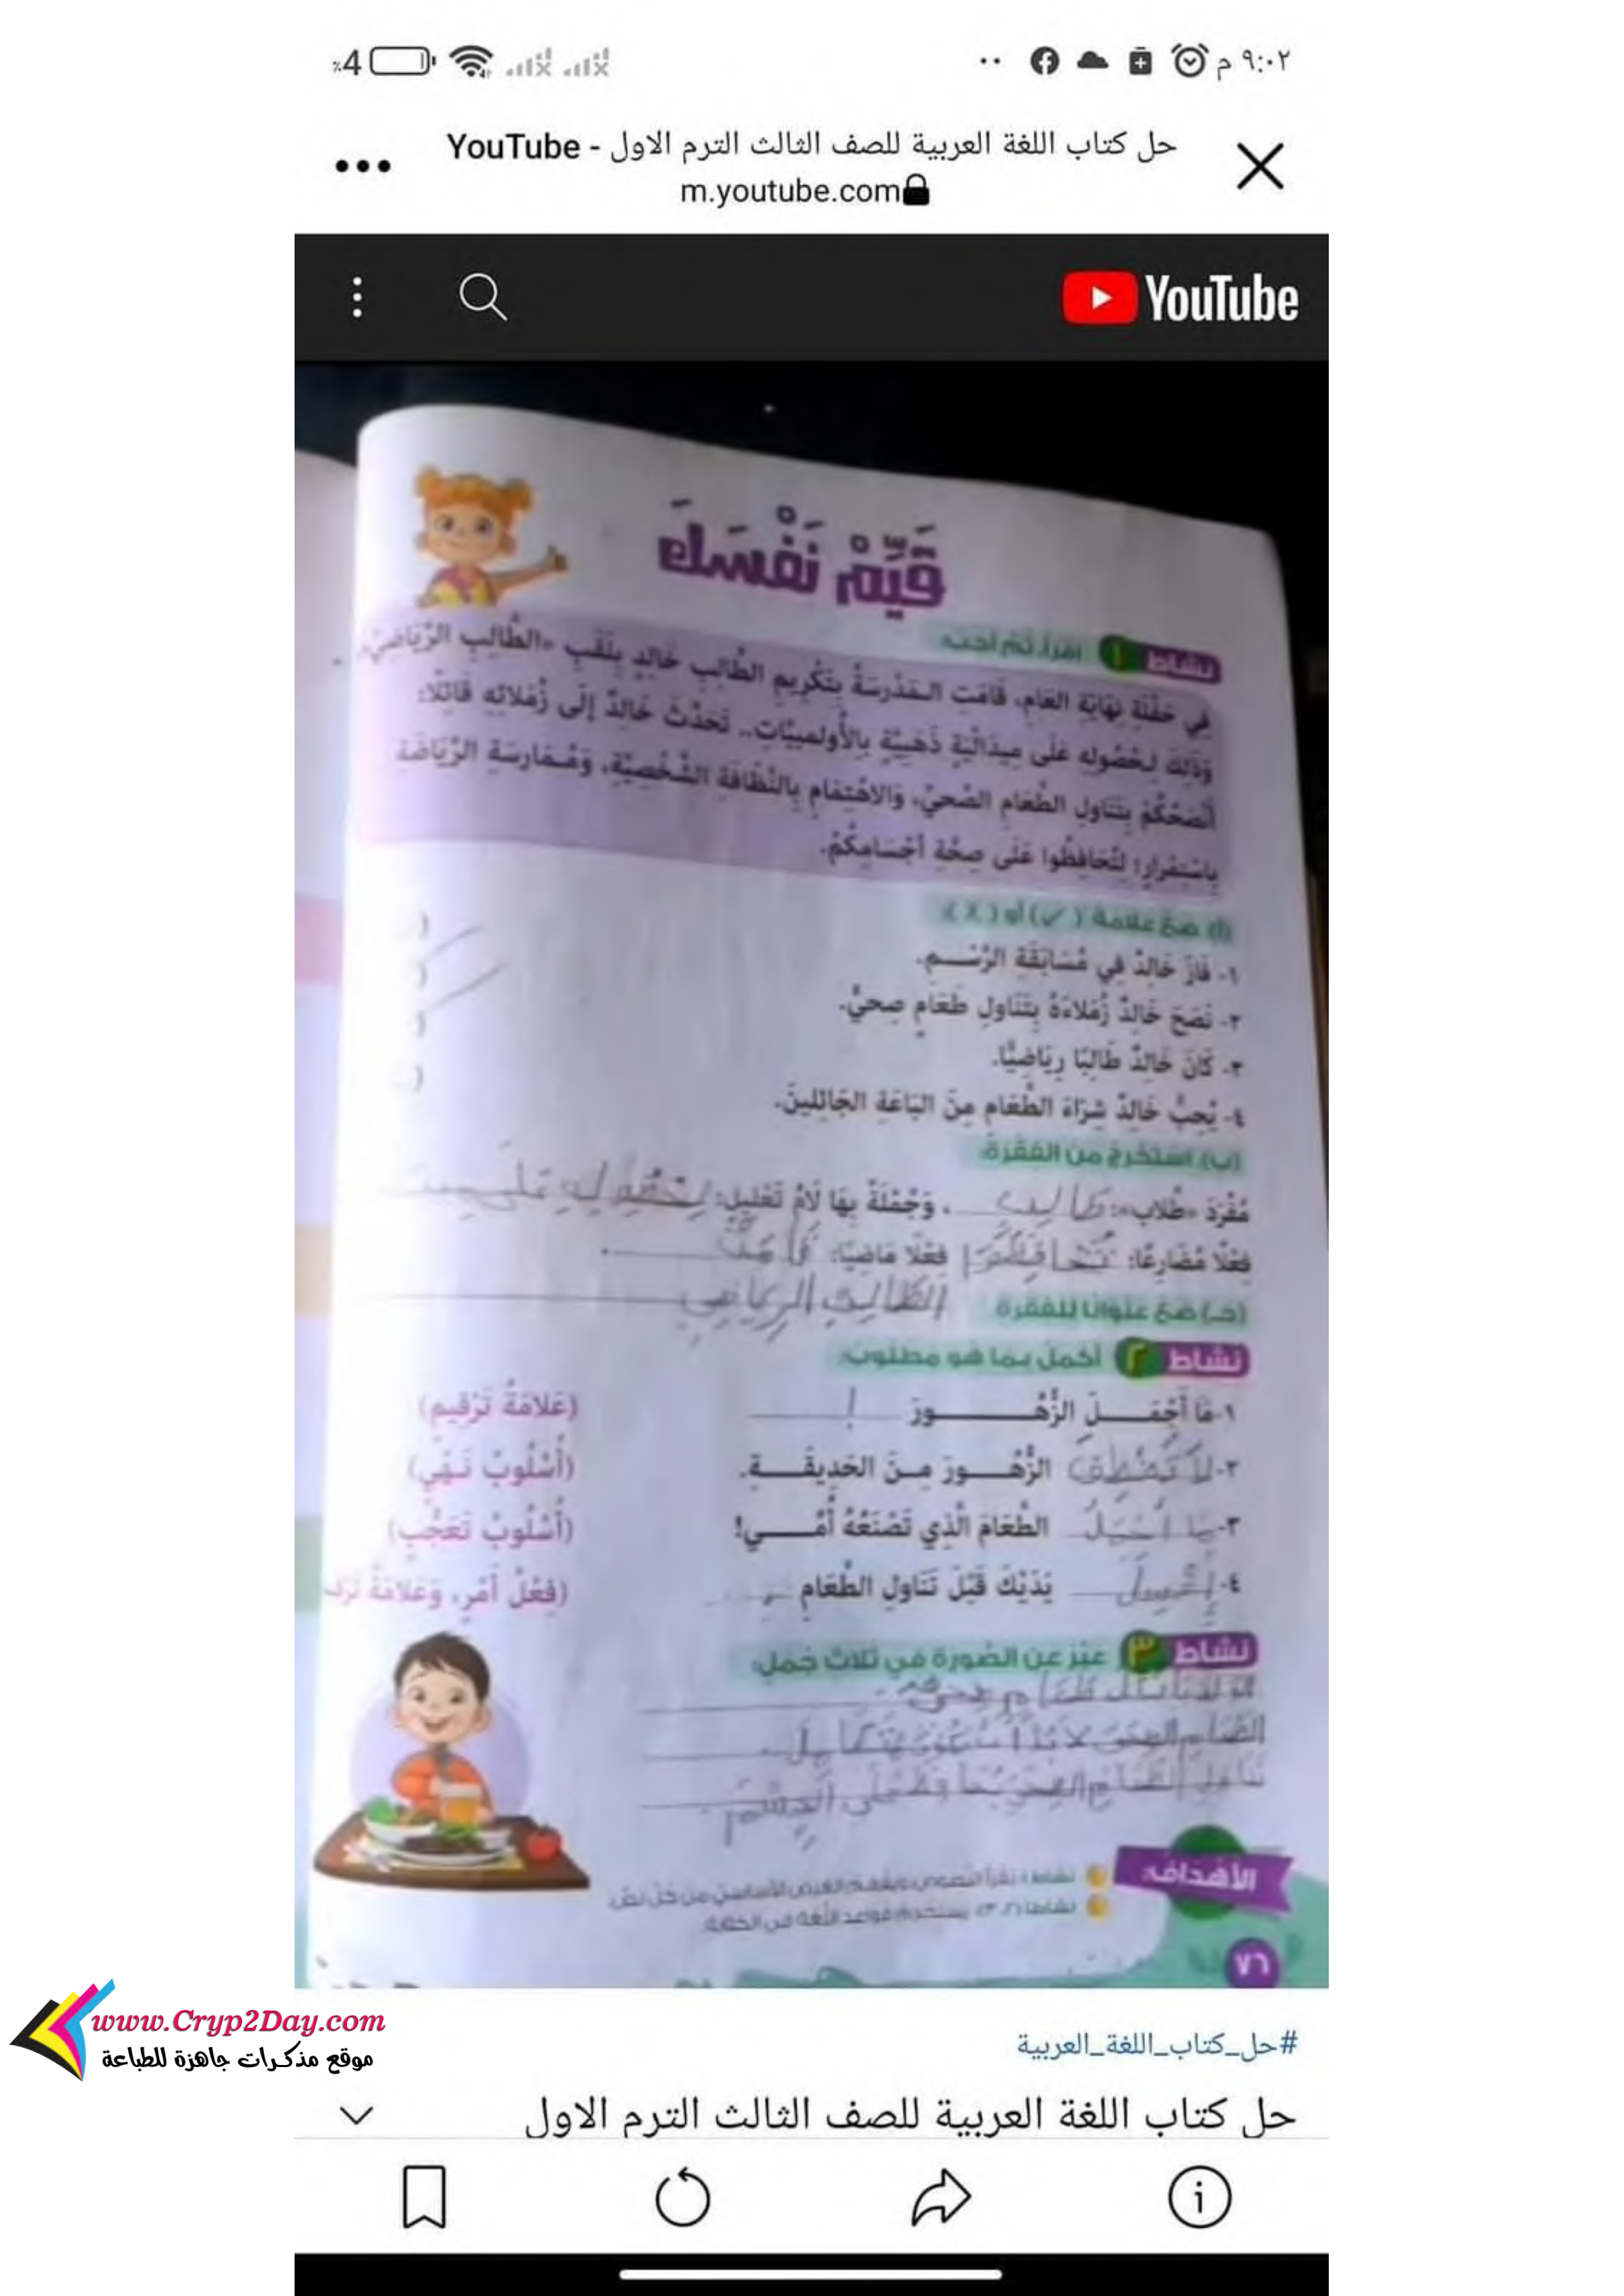 ٩:٠٢ م
٪4
حل كتاب اللغة العربية للصف الثالث الترم الاول - YouTube
m.youtube.com
YouTube
قَيِّمْ نَفْسَكَ
نشاط ١ اقرأ، ثم أجب:
في حَفْلَةِ نِهَايَةِ العَامِ، قَامَتِ الْمَدْرسَةُ بِتَكْرِيمِ الطَّالِبِ خَالِدٍ بِلَقَبِ «الطَّالِبِ الرِّيَاضِيِّ»
وَذَلِكَ لِحُصُولِهِ عَلَى مِيدَالْيَةٍ ذَهَبِيَّةٍ بِالأُولمبِيَّاتِ.. تَحَدَّثَ خَالِدٌ إِلَى زُمَلائِهِ قَائِلًا:
أَنْصَحُكُمْ بِتَنَاوُلِ الطَّعَامِ الصِّحيِّ، وَالاهْتِمَامِ بِالنَّظَافَةِ الشَّخْصِيَّةِ، وَمُمَارسَةِ الرِّيَاضَةِ
بِاسْتِمْرارٍ؛ لِتُحَافِظُوا عَلَى صِحَّةِ أَجْسَامِكُمْ.
(أ) ضع علامة (✓) أو (X):
١- فَازَ خَالِدٌ فِي مُسَابَقَةِ الرَّسْمِ. (
٢- نَصَحَ خَالِدٌ زُمَلاءَهُ بِتَنَاوُلِ طَعَامٍ صِحيٍّ. (
٣- كَانَ خَالِدٌ طَالِبًا رِيَاضِيًّا. (
٤- يُحِبُّ خَالِدٌ شِرَاءَ الطَّعَامِ مِنَ البَاعَةِ الجَائِلِينَ. (
(ب) استخرج من الفقرة:
مُفْرَدَ «طُلاب»: طَالِب، وَجُمْلَةً بِهَا لَامُ تَعْلِيلٍ: لِحُصُولِهِ عَلَى
فِعْلًا مُضَارِعًا: تُحَافِظُوا فِعْلًا مَاضِيًا: قَامَتْ.
(جـ) ضع عنوانًا للفقرة الطَّالِبِ الرِيَاضِي
نشاط ٢ أكمل بما هو مطلوب:
١- مَا أَجْمَلَ الزُّهُورَ ! (عَلامَةُ تَرْقِيمٍ)
٢- لَا تَقْطِفْ الزُّهُورَ مِنَ الحَدِيقَةِ. (أُسْلُوبُ نَهْيٍ)
٣- مَا أَجْمَلَ الطَّعَامَ الَّذِي تَصْنَعُهُ أُمِّي! (أُسْلُوبُ تَعَجُّبٍ)
٤- اِغْسِلْ يَدَيْكَ قَبْلَ تَنَاوُلِ الطَّعَامِ (فِعْلُ أَمْرٍ، وَعَلامَةُ
نشاط ٣ عبر عن الصورة في ثلاث جمل:
طَعَامٍ صِحِيّ.
الطَّعَام الصِحِيّ لَا بُدَّ
تناول الطَّعَامِ الصِحِيّ عَلَى الجِسْم.
الأهداف:
نشاط ١: يقرأ النصوص، ويفهم الغرض الأساسي من كل نص.
نشاط (٢، ٣): يستخدم قواعد اللغة في الكتابة.
٧٦
www.Cryp2Day.com
موقع مذكرات جاهزة للطباعة
#حل_كتاب_اللغة_العربية
حل كتاب اللغة العربية للصف الثالث الترم الاول